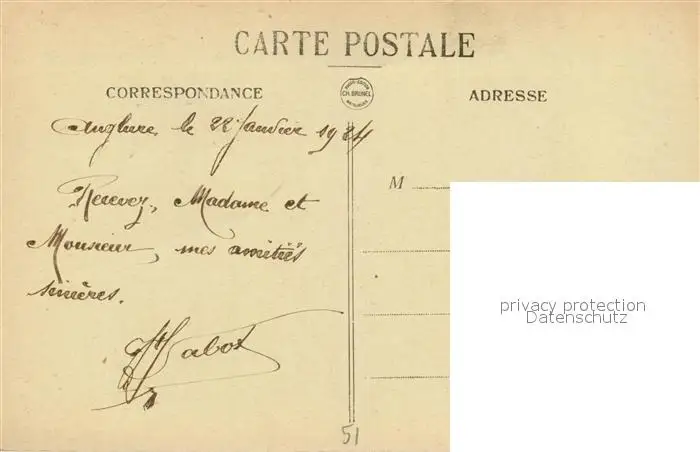 CARTE POSTALE
CORRESPONDANCE
CH. BRUNEL
ADRESSE
Anglure le 22 Janvier 1924
M
Recevez, Madame et
Monsieur, mes amitiés
sincères.
Cabot
51
privacy protection
Datenschutz